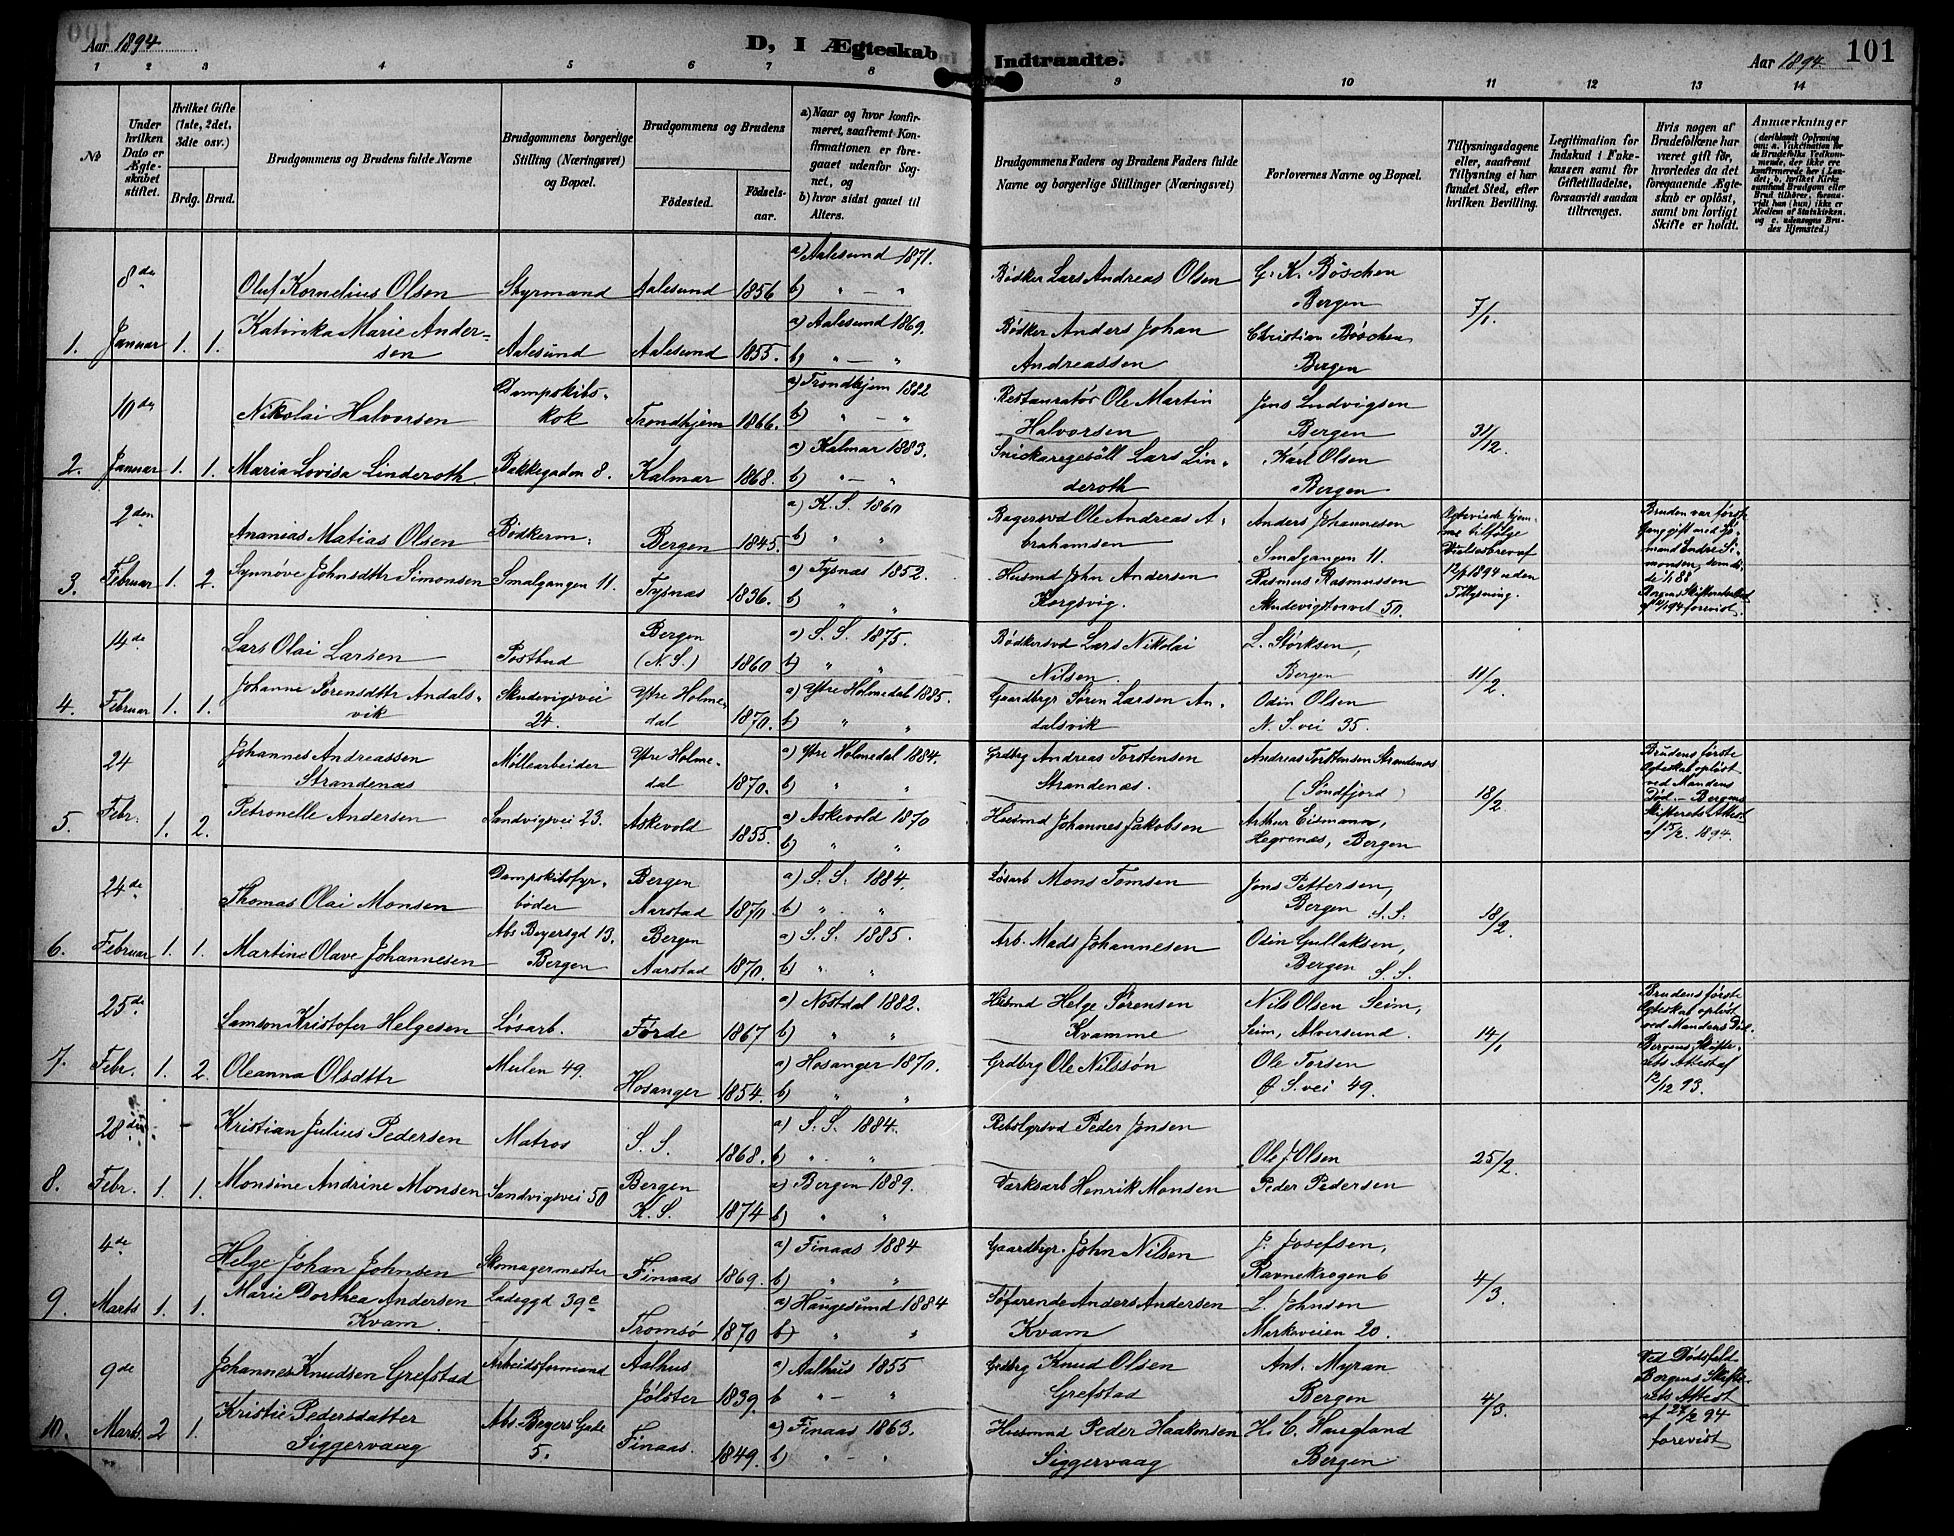 Aar 1894
D, I Ægteskab Indtraadte.
Aar 1894
101
1 2 3 4 5 6 7 8 9 10 11 12 13 14
No
Under hvilken Dato er Ægteskabet stiftet.
Hvilket Gifte (1ste, 2det, 3die osv.)
Brdg. Brud.
Brudgommens og Brudens fulde Navne
Brudgommens borgerlige Stilling (Næringsvei) og Bopæl.
Brudgommens og Brudens
Födested.
Födselsaar.
a) Naar og hvor konfirmeret, saafremt Konfirmationen er foregaaet udenfor Sognet, og
b) hvor sidst gaaet til Alters.
Brudgommens Faders og Brudens Faders fulde Navne og borgerlige Stillinger (Næringsvei)
Forlovernes Navne og Bopæl.
Tillysningsdagene eller, saafremt Tillysning ei har fundet Sted, efter hvilken Bevilling.
Legitimation for Indskud i Enkekassen samt for Giftetilladelse, forsaavidt saadan tiltrænges.
Hvis nogen af Brudefolkene har været gift för, hvorledes da det foregaaende Ægteskab er oplöst, samt om lovligt Skifte er holdt.
Anmærkninger
1. 8de Januar 1. 1.
Oluf Kornelius Olsen Styrmand Aalesund 1856 a) Aalesund 1871. b) " — "
Bødker Lars Andreas Olsen G. K. Böschen Bergen 7/1.
Katinka Marie Andersen Aalesund Aalesund 1855. a) Aalesund 1869. b) " — "
Bødker Anders Johan Andreassen Christian Böschen Bergen
2. 10de Januar 1. 1.
Nikolai Halvorsen Dampskibskok Trondhjem 1866. a) Trondhjem 1882 b) " — "
Restauratør Ole Martin Halvorsen Jens Ludvigsen Bergen 31/12.
Maria Lovisa Linderoth Bakkegaden 8. Kalmar 1868. a) Kalmar 1883. b) " — "
Snickaregesäll Lars Linderoth Karl Olsen Bergen
3. 2den Februar 1. 2.
Ananias Matias Olsen Bødkerm. Bergen 1845. a) K. S. 1860 b) " "
Bagersvd Ole Andreas Abrahamsen Anders Johannesen Smalgangen 11.
Synnøve Johnsdttr Simonsen Smalgangen 11. Tysnæs 1836. a) Tysnæs 1852. b) " "
Husmd John Andersen Korgsvig. Rasmus Rasmussen Skudevigtorvet 50.
1894 uden Tillysning.
Bruden var første Gang gift med
4. 4de Februar 1. 1.
Lars Olai Larsen Postbud Bergen (N. S.) 1860 a) S. S. 1875. b) " "
Bødkersvd Lars Nikolai Nilsen. L. Störksen, Bergen 11/2.
Johanne Sørensdttr Andalsvik Skudevigsvei 24. Ytre Holmedal 1870. a) Ytre Holmedal 1885. b) " "
Gaardbgr Søren Larsen Andalsvik Odin Olsen N. S. vei 35.
5. 24 Febr. 1. 2.
Johannes Andreassen Strandenæs Møllearbeider Ytre Holmedal 1870. a) Ytre Holmedal 1884. b) " "
Grdbrg Andreas Torstensen Strandenæs. Andreas Torstensen Strandenæs (Søndfjord) 18/2
Petronelle Andersen Sandvigsvei 23. Askevold 1855. a) Askevold 1870 b) " "
Husmd Johannes Jakobsen Arthur Eismann, Hegrenæs, Bergen
Brudens første Ægteskab opløst ved Mandens Død. — Bergens Skifterets Attest af 15/2. 1894.
6. 24de Februar 1. 1.
Thomas Olai Monsen Dampskibsfyrbøder Bergen Aarstad 1870 a) S. S. 1884. b) " "
Løsarb Mons Tomsen Jens Pettersen, Bergen S. S. 18/2.
Martine Olave Johannesen Abs Beyersgd 13. Bergen Bergen Aarstad 1870. a) S. S. 1885. b) " "
Arb. Mads Johannesen Odin Gullaksen, Bergen S. S.
7. 25de Febr. 1. 2.
Samson Kristofer Helgesen Løsarb. Førde 1867 a) Nøstdal 1882. b) " "
Husmd Helge Sørensen Kvamme Nils Olsen Seim, Seim, Alversund. 14/1
Oleanna Olsdttr Mulen 49. Hosanger 1854. a) Hosanger 1870. b) " "
Grdbrg Ole Nilssøn Ole Torsen Ø. S. vei 49.
Brudens første Ægteskab opløst ved Mandens Død. Bergens Skifterets Attest af 12/12 93.
8. 28de Febr. 1. 1.
Kristian Julius Pedersen Matros S. S. 1868. a) S. S. 1884. b) " "
Rebslgrsvd Peder Jensen Ole J Olsen 25/2.
Monsine Andrine Monsen Sandvigsvei 50 Bergen K. S. 1874 a) Bergen 1889. b) " "
Værksarb Henrik Monsen Peder Pedersen
9. 4de Marts 1. 1.
Helge Johan Johnsen Skomagermester Finaas 1869. a) Finaas 1884 b) " "
Gaardbgr. John Nilsen J. Josefsen, Ravnekrogen 6 4/3.
Marie Dorthea Andersen Kvam. Ladeggd 39c Tromsø 1870 a) Haugesund 1884 b) " "
Søfarende Anders Andersen Kvam L. Johnsen Markeveien 20.
10. 9de Marts 2 1.
Johannes Knudsen Grefstad Arbeidsformand Aalhus Jølster 1839. a) Aalhus 1855 b — "
Grdbrg Knud Olsen Grefstad Ant. Myran Bergen 4/3.
Kristie Pedersdatter Siggervaag Abs. Beyers Gade 5. Finaas. 1849. a) Finaas 1863. b) " — "
Husmnd Peder Haakensen Siggervaag H. C. Haugland Bergen
Ved Dødsfald Bergens Skifterets Attest af 27/2 94 forevist